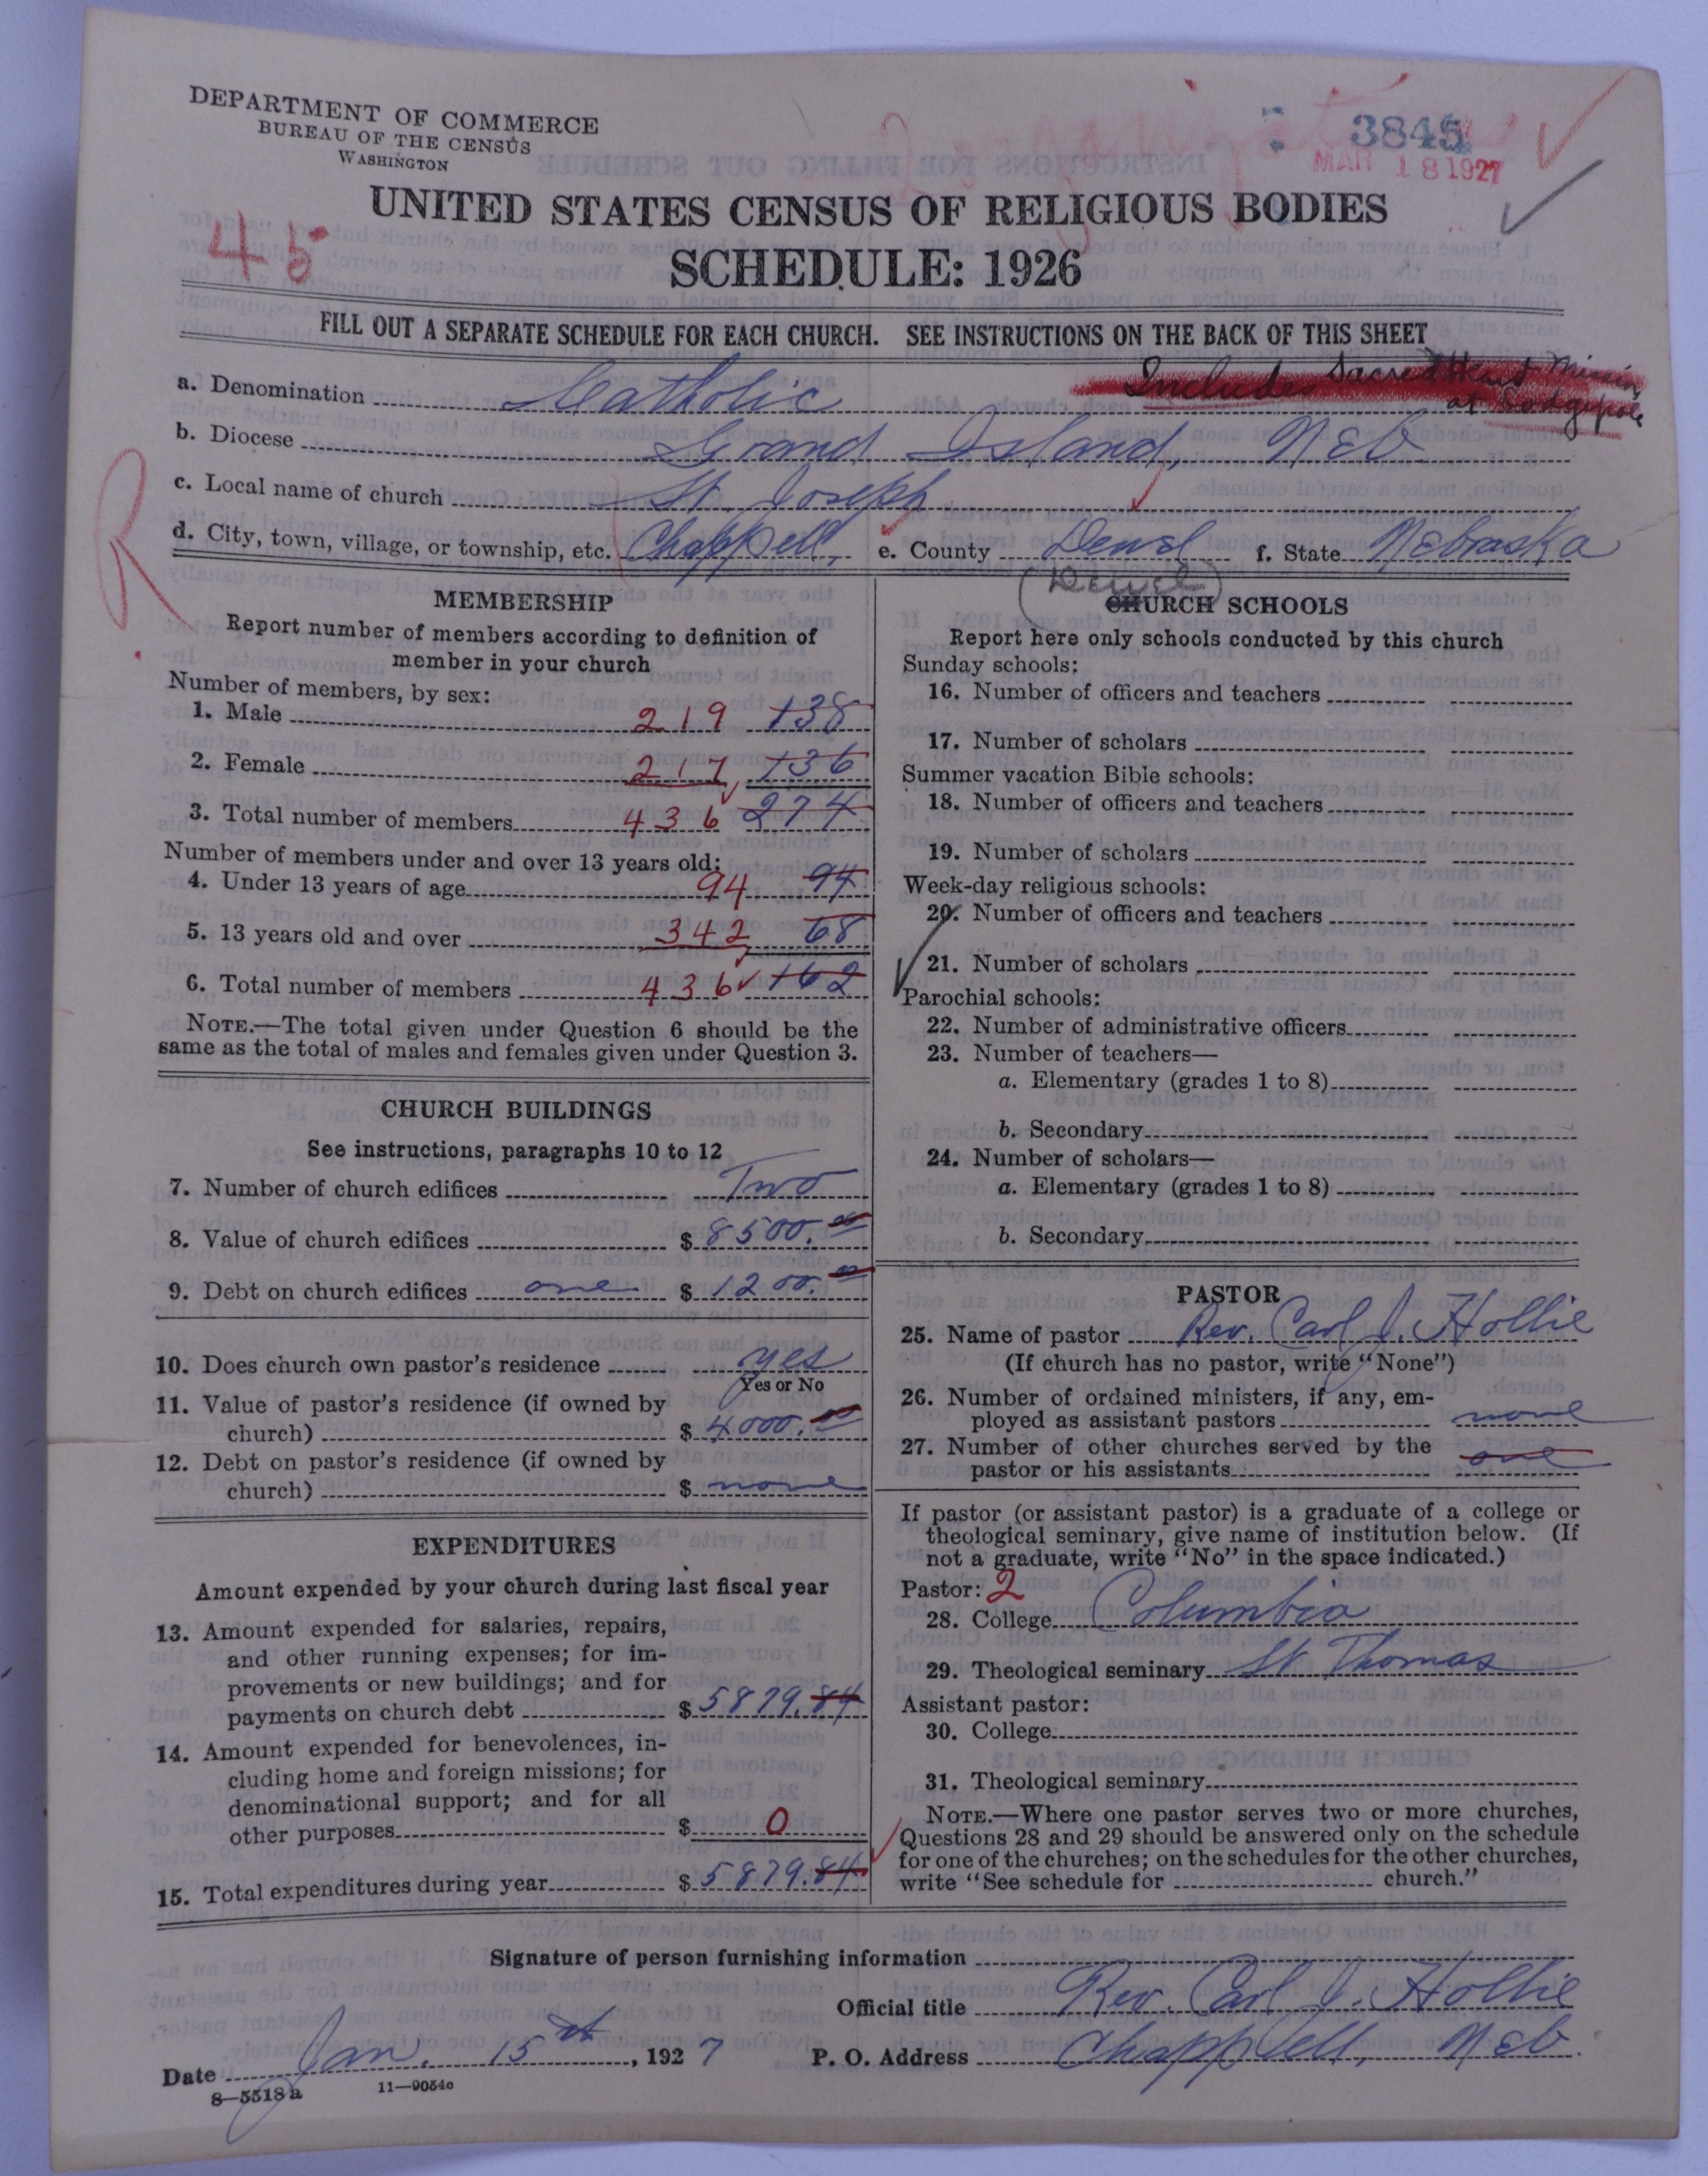 DEPARTMENT OF COMMERCE
BUREAU OF THE CENSUS
WASHINGTON
3845
MAR 18 1927
UNITED STATES CENSUS OF RELIGIOUS BODIES
45
SCHEDULE: 1926
FILL OUT A SEPARATE SCHEDULE FOR EACH CHURCH. SEE INSTRUCTIONS ON THE BACK OF THIS SHEET
Includes Sacred Heart Mission
at Lodgepole
a. Denomination Catholic
b. Diocese Grand Island, Neb.
c. Local name of church St. Joseph
R
d. City, town, village, or township, etc. Chappell, e. County Deuel f. State Nebraska
(Deuel)
MEMBERSHIP
Report number of members according to definition of
member in your church
Number of members, by sex:
1. Male 219 138
2. Female 217 136
3. Total number of members 436 274
Number of members under and over 13 years old:
4. Under 13 years of age 94 94
5. 13 years old and over 342 68
6. Total number of members 436 162
NOTE.—The total given under Question 6 should be the
same as the total of males and females given under Question 3.
CHURCH BUILDINGS
See instructions, paragraphs 10 to 12
7. Number of church edifices Two
8. Value of church edifices $ 8500.00
9. Debt on church edifices one $ 1200.00
10. Does church own pastor's residence yes
Yes or No
11. Value of pastor's residence (if owned by
church) $ 4000.00
12. Debt on pastor's residence (if owned by
church) $ none
EXPENDITURES
Amount expended by your church during last fiscal year
13. Amount expended for salaries, repairs,
and other running expenses; for im-
provements or new buildings; and for
payments on church debt $ 5879.84
14. Amount expended for benevolences, in-
cluding home and foreign missions; for
denominational support; and for all
other purposes $ 0
15. Total expenditures during year $ 5879.84
CHURCH SCHOOLS
Report here only schools conducted by this church
Sunday schools:
16. Number of officers and teachers
17. Number of scholars
Summer vacation Bible schools:
18. Number of officers and teachers
19. Number of scholars
Week-day religious schools:
20. Number of officers and teachers
21. Number of scholars
Parochial schools:
22. Number of administrative officers
23. Number of teachers—
a. Elementary (grades 1 to 8)
b. Secondary
24. Number of scholars—
a. Elementary (grades 1 to 8)
b. Secondary
PASTOR
25. Name of pastor Rev. Carl J. Hollie
(If church has no pastor, write "None")
26. Number of ordained ministers, if any, em-
ployed as assistant pastors none
27. Number of other churches served by the
pastor or his assistants one
If pastor (or assistant pastor) is a graduate of a college or
theological seminary, give name of institution below. (If
not a graduate, write "No" in the space indicated.)
Pastor: 2
28. College Columbia
29. Theological seminary St Thomas
Assistant pastor:
30. College
31. Theological seminary
NOTE.—Where one pastor serves two or more churches,
Questions 28 and 29 should be answered only on the schedule
for one of the churches; on the schedules for the other churches,
write "See schedule for church."
Signature of person furnishing information
Official title Rev. Carl J. Hollie
Date Jan. 15th, 1927 P. O. Address Chappell, Neb.
8—5518a 11—9054c